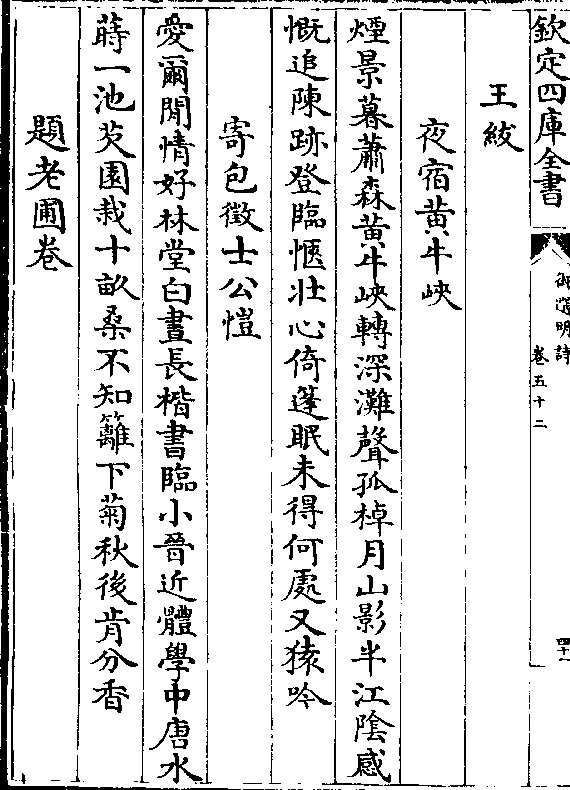 欽定四庫全書
御選明詩
卷五十二
四十一
王紱
夜宿黄牛峽
煙景暮蕭森黄牛峽轉深灘聲孤棹月山影半江陰感
慨追陳跡登臨愜壯心倚蓬眠未得何處又猿吟
寄包徵士公愷
愛爾閒情好林堂白晝長楷書臨小晉近體學中唐水
蒔一池芡園栽十畝桑不知籬下菊秋後肯分香
題老圃卷